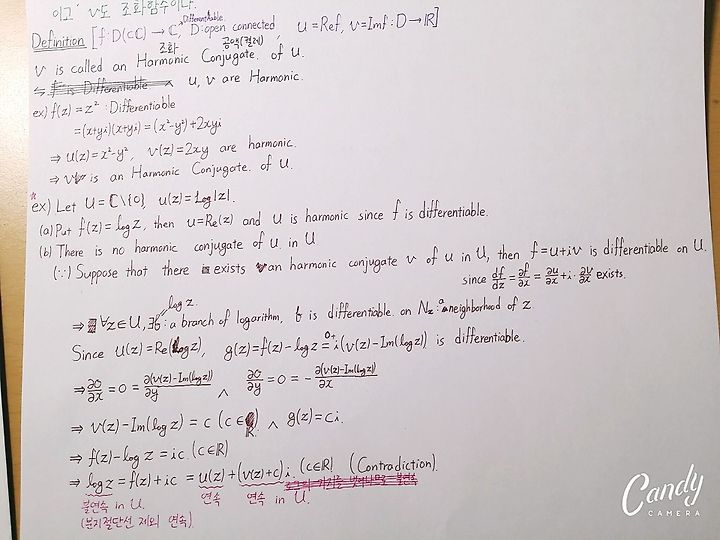 이고 v도 조화함수이다.
Differentiable
Definition [f:D(⊂ℂ)→ℂ, D:open connected, u=Ref, v=Imf:D→ℝ]
조화 공액(켤레)
v is called an Harmonic Conjugate of u.
⇆ f is Differentiable u, v are Harmonic.
ex) f(z)=z² : Differentiable
=(x+yi)(x+yi)=(x²-y²)+2xyi
⇒ u(z)=x²-y², v(z)=2xy are harmonic.
⇒ v is an Harmonic Conjugate of u.
*ex) Let U=ℂ\{0}, u(z)=Log|z|.
(a) Put f(z)=logz, then u=Re(z) and u is harmonic since f is differentiable.
(b) There is no harmonic conjugate of u in U
(∵) Suppose that there exists an harmonic conjugate v of u in U, then f=u+iv is differentiable on U.
since df/dz=∂f/∂x=∂u/∂x+i·∂v/∂x exists.
log z.
⇒ ∀z∈U, ∃ : a branch of logarithm, is differentiable on Nz : a neighborhood of z.
Since u(z)=Re(logz), g(z)=f(z)-logz=0+i(v(z)-Im(logz)) is differentiable.
⇒ ∂0/∂x=0=∂(v(z)-Im(logz))/∂y ∧ ∂0/∂y=0=-∂(v(z)-Im(logz))/∂x
⇒ v(z)-Im(logz)=c (c∈ℝ) ∧ g(z)=ci.
⇒ f(z)-logz=ic. (c∈ℝ)
⇒ logz=f(z)+ic=u(z)+(v(z)+c)i (c∈ℝ) (Contradiction).
불연속 in U. 연속 연속 in U.
(분지절단선 제외 연속)
Candy
CAMERA